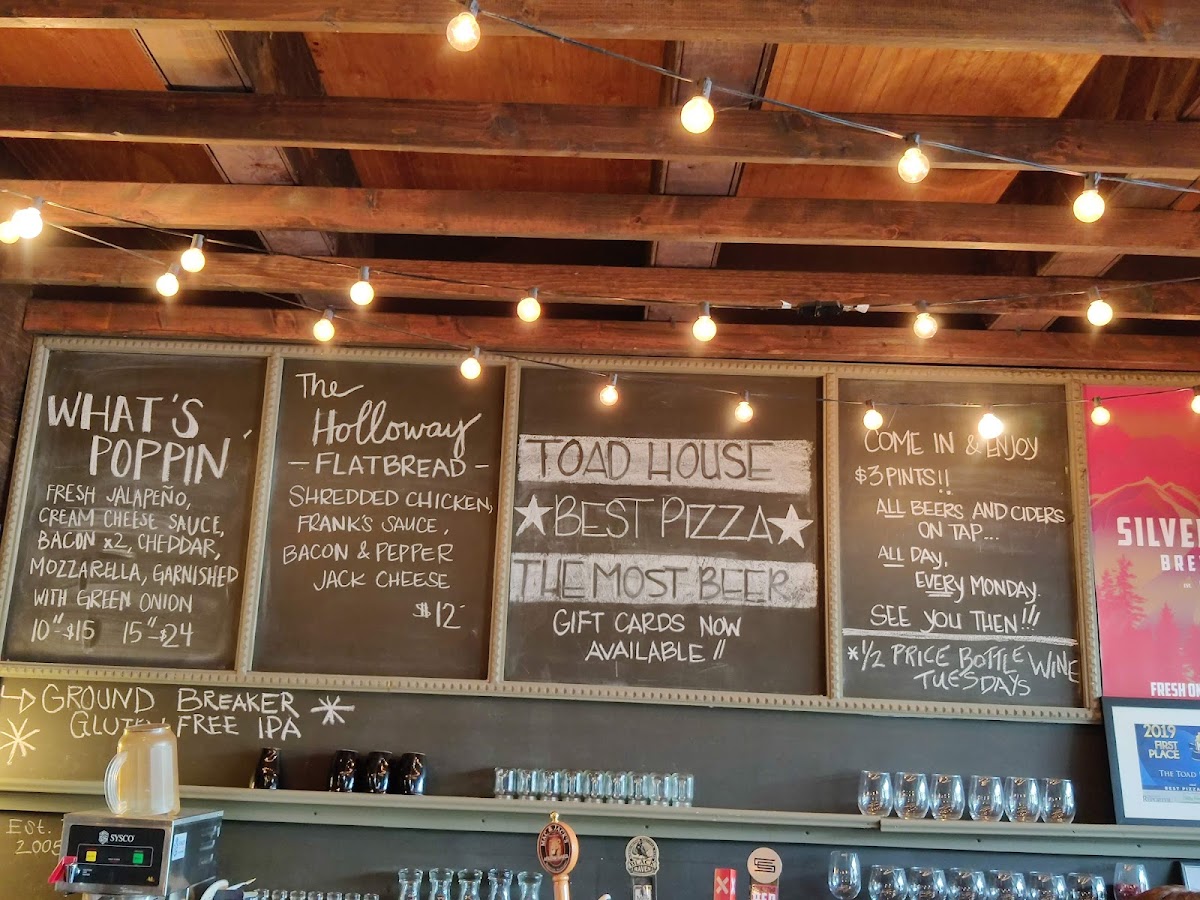 WHAT'S
POPPIN'
FRESH JALAPEÑO,
CREAM CHEESE SAUCE,
BACON x2, CHEDDAR,
MOZZARELLA, GARNISHED
WITH GREEN ONION
10"-$15 15"-$24
The
Holloway
-FLATBREAD-
SHREDDED CHICKEN,
FRANK'S SAUCE,
BACON & PEPPER
JACK CHEESE
$12-
TOAD HOUSE
★BEST PIZZA★
THE MOST BEER
GIFT CARDS NOW
AVAILABLE!!
COME IN & ENJOY
$3 PINTS!!
ALL BEERS AND CIDERS
ON TAP...
ALL DAY,
EVERY MONDAY.
SEE YOU THEN!!!
*1/2 PRICE BOTTLE WINE
TUESDAYS
→ GROUND BREAKER *
* GLUTEN FREE IPA
EST.
2005
SYSCO
SILVE
BRE
FRESH O
2019
FIRST
PLACE
THE TOAD
BEST PIZZA